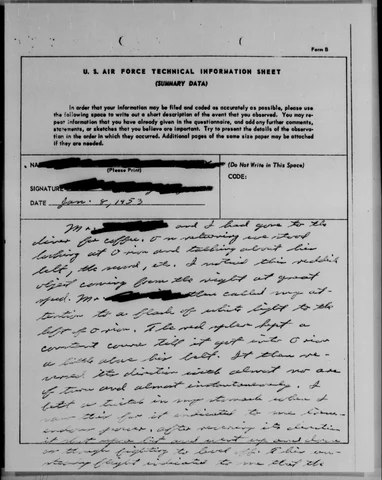 Form B
U. S. AIR FORCE TECHNICAL INFORMATION SHEET
(SUMMARY DATA)
In order that your information may be filed and coded as accurately as possible, please use
the following space to write out a short description of the event that you observed. You may re-
peat information that you have already given in the questionnaire, and add any further comments,
statements, or sketches that you believe are important. Try to present the details of the observa-
tion in the order in which they occurred. Additional pages of the same size paper may be attached
if they are needed.
NA
(Please Print)
(Do Not Write in This Space)
SIGNATURE
CODE:
DATE Jan. 8, 1953
Mr. and I had gone to the
diner for coffee. On returning we stood
looking at Orion and talking about his
belt, the sword, etc. I noticed this reddish
object coming from the right at great
speed. Mr. then called my at-
tention to a flash of white light to the
left of Orion. The red object kept a
constant course till it got into Orion
a little above his belt. It then re-
versed its direction with almost no arc
of turn and almost instantaneously. I
felt a in my stomach when I
saw this for it indicated to me
power. After reversing its direction
it and went up and down
as though fighting to level off. This
flight indicated to me that the